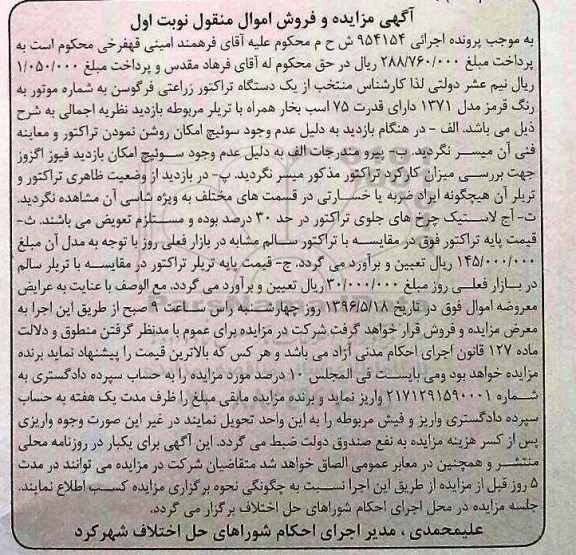 آگهی مزایده و فروش اموال منقول نوبت اول
به موجب پرونده اجرائی ۹۵۴۱۵۴ ش ح م محکوم علیه آقای فرهمند امینی قهفرخی محکوم است به
پرداخت مبلغ ۲۸۸/۷۶۰/۰۰۰ ریال در حق محکوم له آقای فرهاد مقدس و پرداخت مبلغ ۱/۰۵۰/۰۰۰
ریال نیم عشر دولتی لذا کارشناس منتخب از یک دستگاه تراکتور زراعتی فرگوسن به شماره موتور به
رنگ قرمز مدل ۱۳۷۱ دارای قدرت ۷۵ اسب بخار همراه با تریلر مربوطه بازدید نظریه اجمالی به شرح
ذیل می باشد. الف - در هنگام بازدید به دلیل عدم وجود سوئیچ امکان روشن نمودن تراکتور و معاینه
فنی آن میسر نگردید. ب- پیرو مندرجات الف به دلیل عدم وجود سوئیچ امکان بازدید فیوز اگزوز
جهت بررسی میزان کارکرد تراکتور مذکور میسر نگردید. پ- در بازدید از وضعیت ظاهری تراکتور و
تریلر آن هیچگونه ایراد ضربه یا خسارتی در قسمت های مختلف به ویژه شاسی آن مشاهده نگردید.
ت- آج لاستیک چرخ های جلوی تراکتور در حد ۳۰ درصد بوده و مستلزم تعویض می باشند. ث-
قیمت پایه تراکتور فوق در مقایسه با تراکتور سالم مشابه در بازار فعلی روز با توجه به مدل آن مبلغ
۱۴۵/۰۰۰/۰۰۰ ریال تعیین و برآورد می گردد. ج- قیمت پایه تریلر تراکتور در مقایسه با تریلر سالم
در بازار فعلی روز مبلغ ۳۰/۰۰۰/۰۰۰ ریال تعیین و برآورد می گردد. مع الوصف با عنایت به عرایض
معروضه اموال فوق در تاریخ ۱۳۹۶/۵/۱۸ روز چهارشنبه راس ساعت ۹ صبح از طریق این اجرا به
معرض مزایده و فروش قرار خواهد گرفت شرکت در مزایده برای عموم با مدنظر گرفتن منطوق و دلالت
ماده ۱۲۷ قانون اجرای احکام مدنی آزاد می باشد و هر کس که بالاترین قیمت را پیشنهاد نماید برنده
مزایده خواهد بود ومی بایست فی المجلس ۱۰ درصد مورد مزایده را به حساب سپرده دادگستری به
شماره ۲۱۷۱۲۹۱۵۹۰۰۰۱ واریز نماید و برنده مزایده مابقی مبلغ را ظرف مدت یک هفته به حساب
سپرده دادگستری واریز و فیش مربوطه را به این واحد تحویل نمایند در غیر این صورت وجوه واریزی
پس از کسر هزینه مزایده به نفع صندوق دولت ضبط می گردد. این آگهی برای یکبار در روزنامه محلی
منتشر و همچنین در معابر عمومی الصاق خواهد شد متقاضیان شرکت در مزایده می توانند در مدت
۵ روز قبل از مزایده از طریق این اجرا نسبت به چگونگی نحوه برگزاری مزایده کسب اطلاع نمایند.
جلسه مزایده در محل اجرای احکام شوراهای حل اختلاف برگزار می گردد.
علیمحمدی ، مدیر اجرای احکام شوراهای حل اختلاف شهرکرد